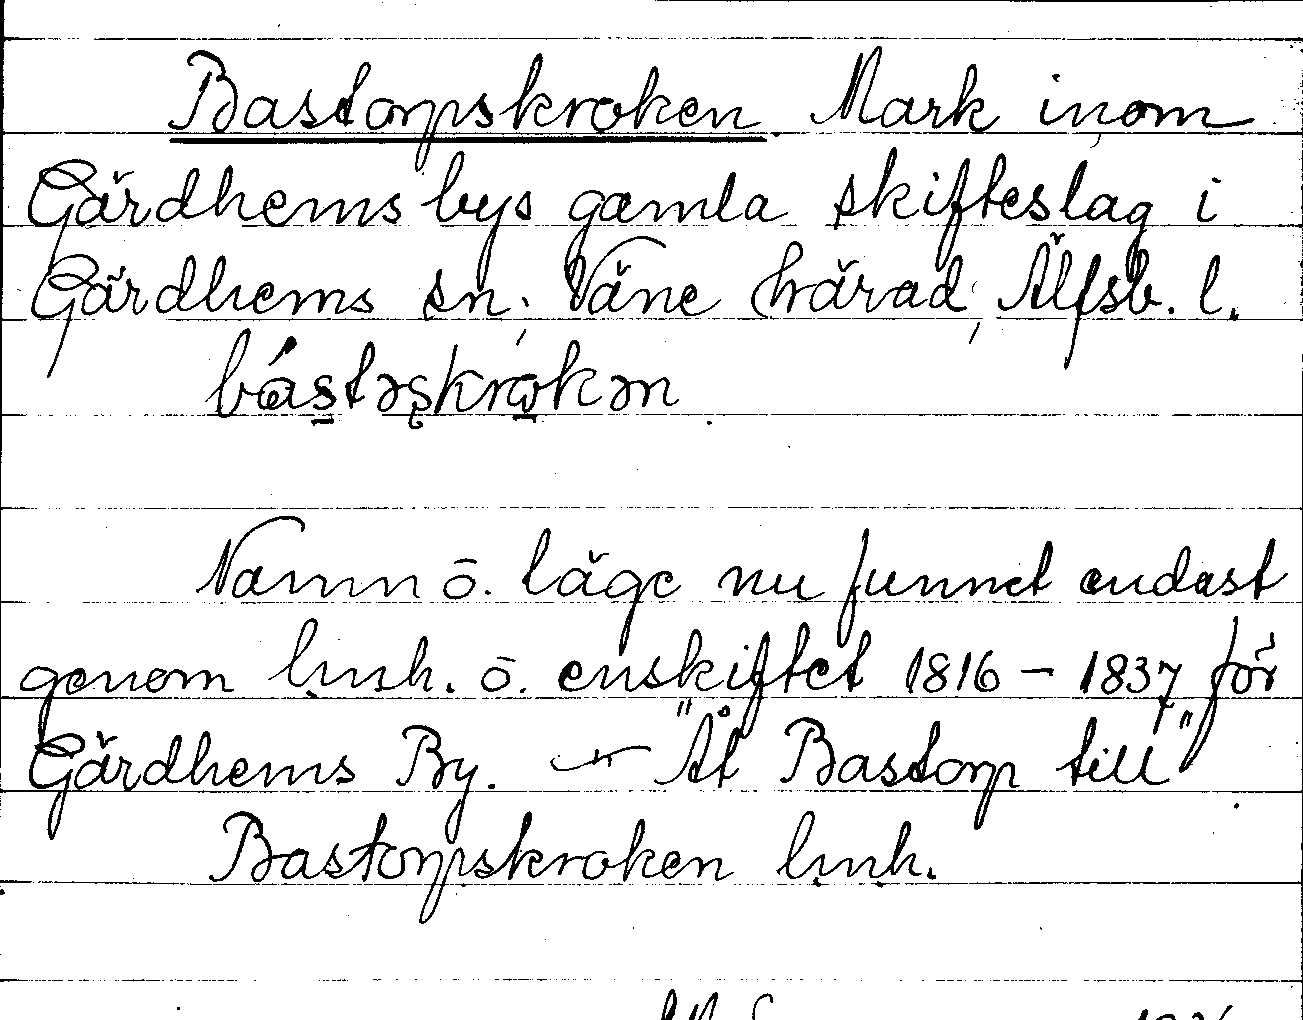 Bastorpskroken Mark inom
Gärdhems bys gamla skifteslag i
Gärdhems sn, Väne härad, Älfsb. l.
bástəskrokən
Namn o. läge nu funnet endast
genom lmh. o. enskiftet 1816 – 1837 för
Gärdhems By. — "Åt Bastorp till"
Bastorpskroken lmh.